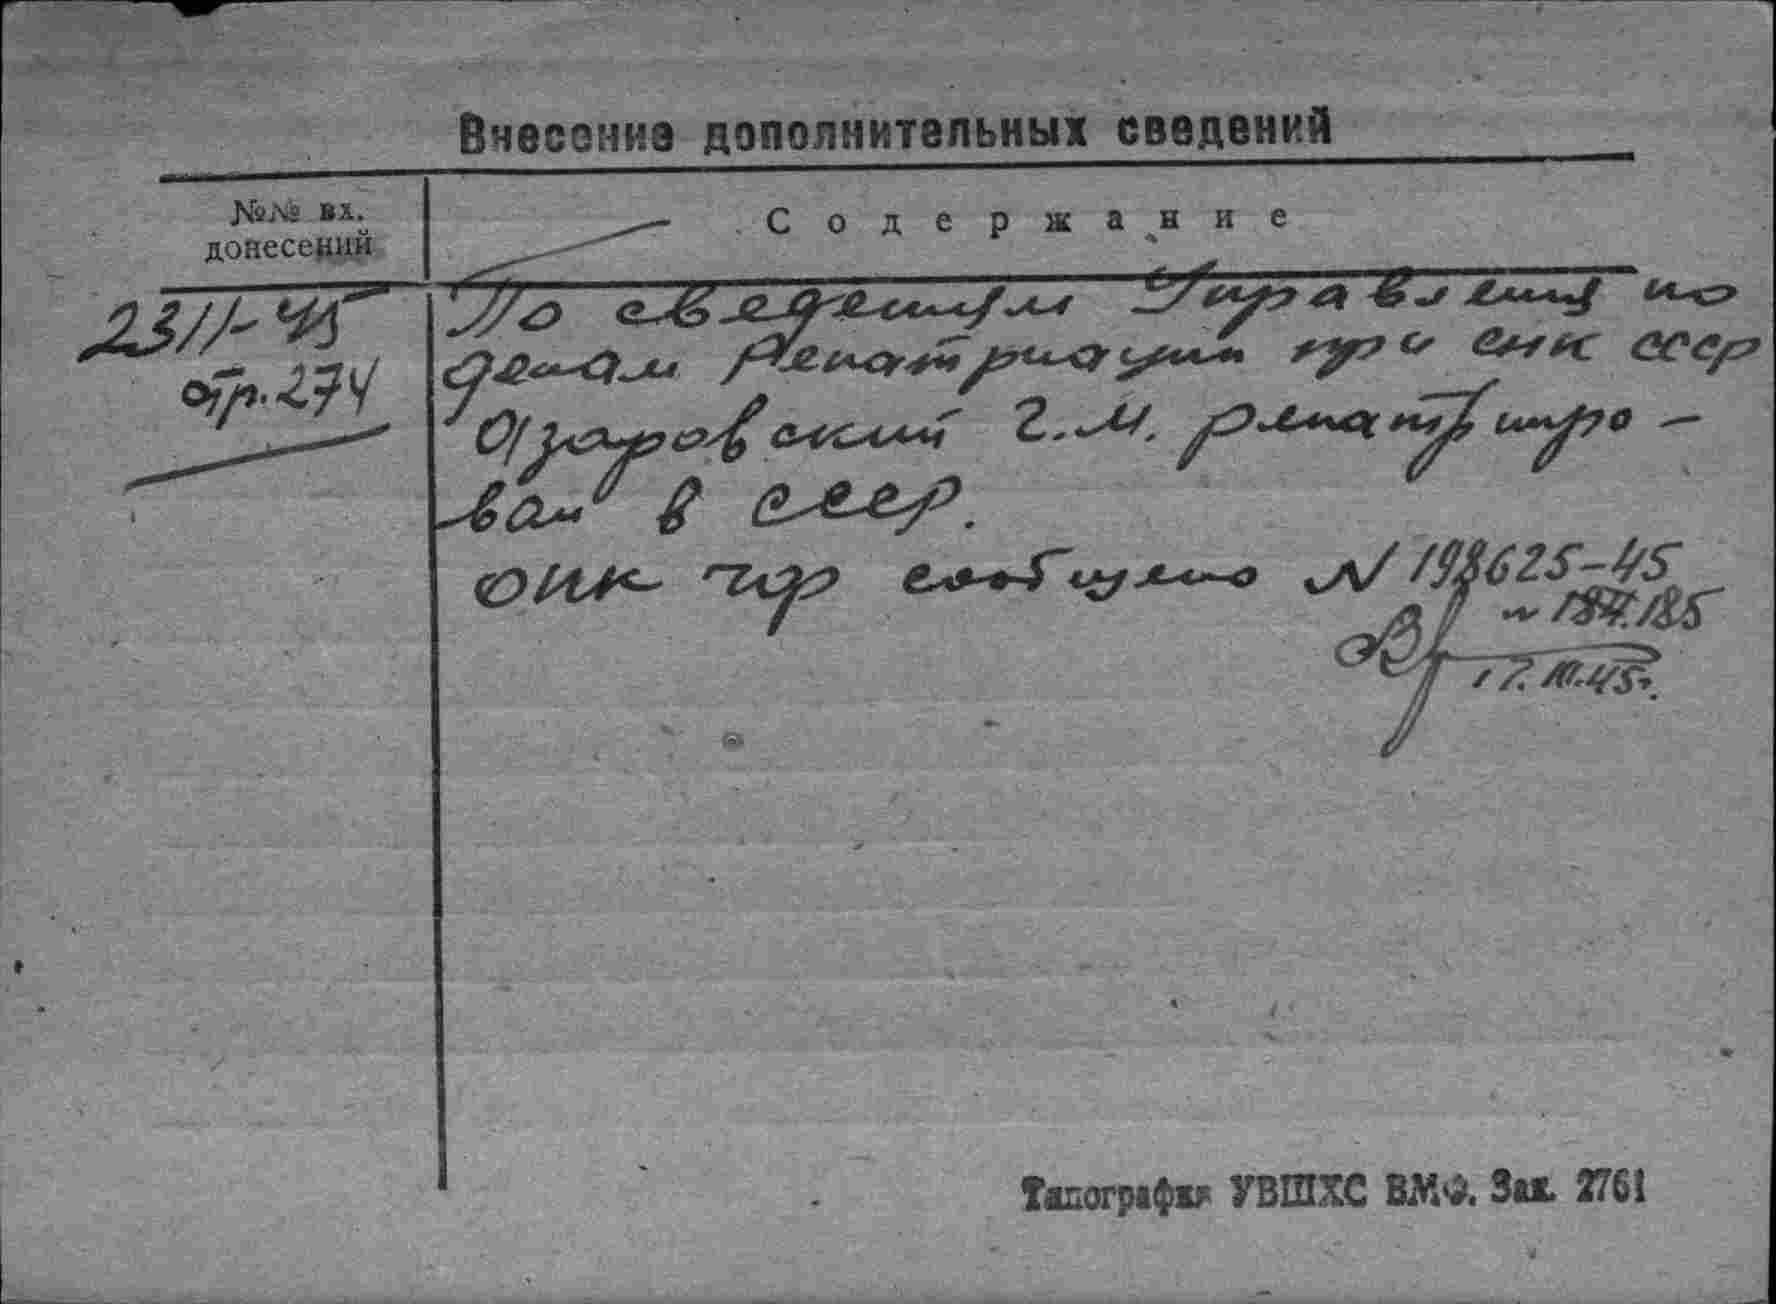 Внесение дополнительных сведений
№№ вх. донесений
Содержание
2311-45
стр. 274
По сведениям Управления по
делам Репатриации при СНК СССР
Озаровский Г.М. репатрииро-
ван в СССР.
ОПК ЧФ сообщено N 198625-45
185
17.10.45г.
Типография УВШХС ВМФ. Зак. 2761